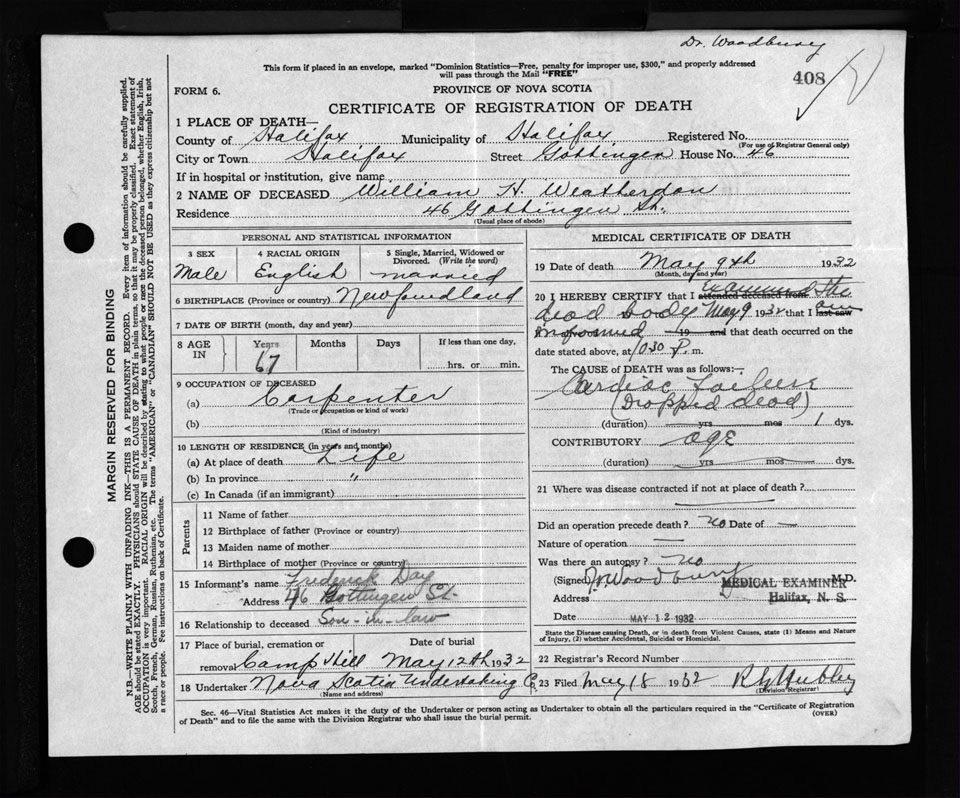 Dr. Woodbury
This form if placed in an envelope, marked "Dominion Statistics—Free, penalty for improper use, $300," and properly addressed
will pass through the Mail "FREE"
408
FORM 6.
PROVINCE OF NOVA SCOTIA
CERTIFICATE OF REGISTRATION OF DEATH
1 PLACE OF DEATH—
County of Halifax Municipality of Halifax Registered No.
(For use of Registrar General only)
City or Town Halifax Street Gottingen House No. 46
If in hospital or institution, give name
2 NAME OF DECEASED William H. Weatherdon
Residence 46 Gottingen St.
(Usual place of abode)
PERSONAL AND STATISTICAL INFORMATION
3 SEX Male
4 RACIAL ORIGIN English
5 Single, Married, Widowed or Divorced. (Write the word) married
6 BIRTHPLACE (Province or country) Newfoundland
7 DATE OF BIRTH (month, day and year)
8 AGE IN Years 67 Months Days If less than one day, hrs. or min.
9 OCCUPATION OF DECEASED
(a) Carpenter
(Trade or occupation or kind of work)
(b)
(Kind of industry)
10 LENGTH OF RESIDENCE (in years and months)
(a) At place of death Life
(b) In province "
(c) In Canada (if an immigrant)
Parents
11 Name of father
12 Birthplace of father (Province or country)
13 Maiden name of mother
14 Birthplace of mother (Province or country)
15 Informant's name Frederick Day
Address 46 Gottingen St.
16 Relationship to deceased Son-in-law
17 Place of burial, cremation or removal Camp Hill
Date of burial May 12th 1932
18 Undertaker Nova Scotia Undertaking Co
(Name and address)
MEDICAL CERTIFICATE OF DEATH
19 Date of death May 9th 1932
(Month, day and year)
20 I HEREBY CERTIFY that I attended deceased from examined the
dead body May 9 1932 that I last saw am
informed 19 and that death occurred on
date stated above, at 1030 P. m.
The CAUSE of DEATH was as follows:—
Cardiac Failure
(Dropped dead)
(duration) yrs mos 1 dys.
CONTRIBUTORY age
(duration) yrs mos dys.
21 Where was disease contracted if not at place of death?
Did an operation precede death? no Date of —
Nature of operation —
Was there an autopsy? no
(Signed) Woodbury M.D.
MEDICAL EXAMINER
Address Halifax, N. S.
Date MAY 12 1932
State the Disease causing Death, or in death from Violent Causes, state (1) Means and Nature
of Injury, (2) whether Accidental, Suicidal or Homicidal.
22 Registrar's Record Number
23 Filed May 18 1932
(Division Registrar)
Sec. 46—Vital Statistics Act makes it the duty of the Undertaker or person acting as Undertaker to obtain all the particulars required in the "Certificate of Registration
of Death" and to file the same with the Division Registrar who shall issue the burial permit.
(OVER)
MARGIN RESERVED FOR BINDING
N.B.—WRITE PLAINLY WITH UNFADING INK—THIS IS A PERMANENT RECORD. Every item of information should be carefully supplied.
AGE should be stated EXACTLY. PHYSICIANS should STATE CAUSE OF DEATH in plain terms, so that it may be properly classified. Exact statement of
OCCUPATION is very important. RACIAL ORIGIN will be described by stating to what people or race the deceased person belonged, whether English, Irish,
Scotch, French, German, Russian, Ruthenian, etc. The terms "AMERICAN" or "CANADIAN" SHOULD NOT BE USED as they express citizenship but not
a race or people. See instructions on back of Certificate.